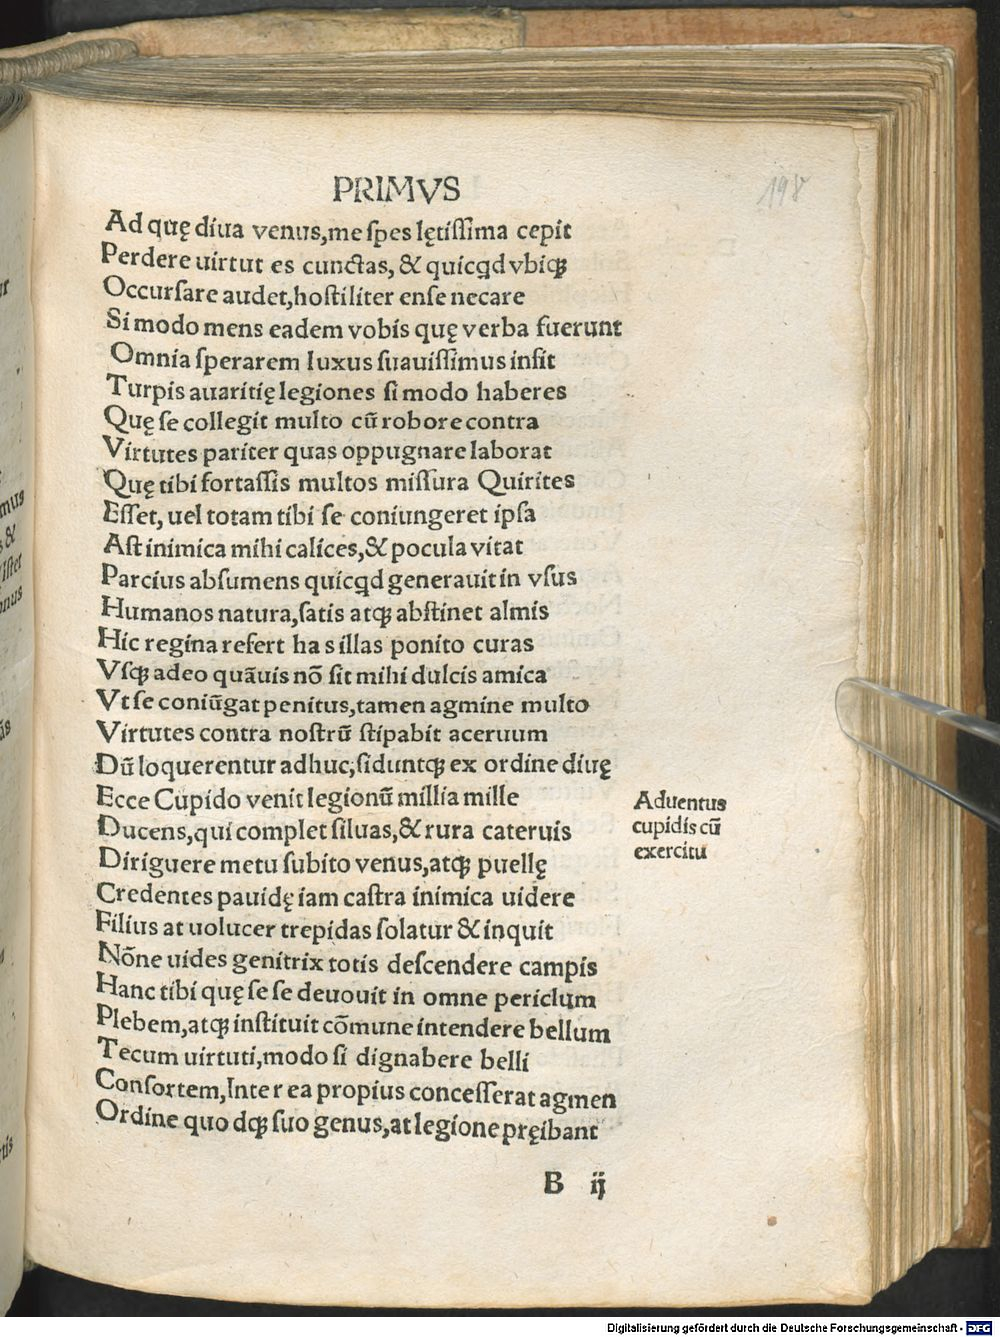 PRIMVS
198
Ad quę diua venus,me ſpes lętiſſima cepit
Perdere uirtut es cunctas, & quicqd vbiqꝫ
Occurſare audet,hoſtiliter enſe necare
Si modo mens eadem vobis quę verba fuerunt
Omnia ſperarem luxus ſuauiſſimus inſit
Turpis auaritię legiones ſi modo haberes
Quę ſe collegit multo cū robore contra
Virtutes pariter quas oppugnare laborat
Quę tibi fortaſſis multos miſſura Quirites
Eſſet, uel totam tibi ſe coniungeret ipſa
Aſt inimica mihi calices,& pocula vitat
Parcius abſumens quicqd generauit in vſus
Humanos natura,ſatis atqꝫ abſtinet almis
Hic regina refert ha s illas ponito curas
Vſqꝫ adeo quāuis nō ſit mihi dulcis amica
Vt ſe coniūgat penitus,tamen agmine multo
Virtutes contra noſtrū ſtipabit aceruum
Dū loquerentur adhuc,ſiduntqꝫ ex ordine diuę
Ecce Cupido venit legionū millia mille
Ducens,qui complet ſiluas,& rura cateruis
Diriguere metu ſubito venus,atqꝫ puellę
Credentes pauidę iam caſtra inimica uidere
Filius at uolucer trepidas ſolatur & inquit
Nōne uides genitrix totis deſcendere campis
Hanc tibi quę ſe ſe deuouit in omne periclum
Plebem,atqꝫ inſtituit cōmune intendere bellum
Tecum uirtuti,modo ſi dignabere belli
Conſortem,Inter ea propius conceſſerat agmen
Ordine quo dqꝫ ſuo genus,at legione pręibant
Aduentus
cupidis cū
exercitu
B ij
Digitalisierung gefördert durch die Deutsche Forschungsgemeinschaft - DFG